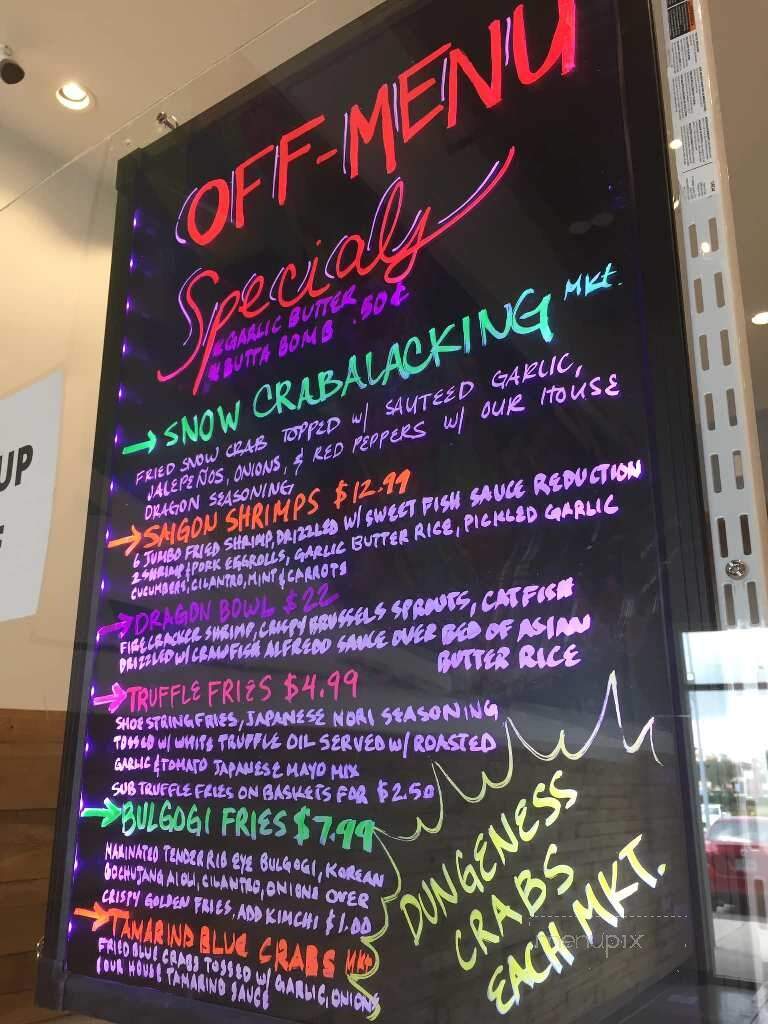 OFF-MENU
Specials
*GARLIC BUTTER
*BUTTA BOMB .50¢
→SNOW CRABALACKING MKt.
FRIED SNOW CRAB TOPPED W/ SAUTEED GARLIC,
JALEPEÑOS, ONIONS, & RED PEPPERS W/ OUR HOUSE
DRAGON SEASONING
→SAIGON SHRIMPS $12.99
6 JUMBO FRIED SHRIMP, DRIZZLED W/ SWEET FISH SAUCE REDUCTION
2 SHRIMP & PORK EGGROLLS, GARLIC BUTTER RICE, PICKLED GARLIC
CUCUMBERS, CILANTRO, MINT & CARROTS
→DRAGON BOWL $22
FIRECRACKER SHRIMP, CRISPY BRUSSELS SPROUTS, CATFISH
DRIZZLED W/ CRAWFISH ALFREDO SAUCE OVER BED OF ASIAN
BUTTER RICE
→TRUFFLE FRIES $4.99
SHOESTRING FRIES, JAPANESE NORI SEASONING
TOSSED W/ WHITE TRUFFLE OIL SERVED W/ ROASTED
GARLIC & TOMATO JAPANESE MAYO MIX
SUB TRUFFLE FRIES ON BASKETS FOR $2.50
→BULGOGI FRIES $7.99
MARINATED TENDER RIB EYE BULGOGI, KOREAN
GOCHUJANG AIOLI, CILANTRO, ONIONS OVER
CRISPY GOLDEN FRIES, ADD KIMCHI $1.00
→TAMARIND BLUE CRABS MKt
FRIED BLUE CRABS TOSSED W/ GARLIC, ONIONS
& OUR HOUSE TAMARIND SAUCE
DUNGENESS
CRABS
EACH MKT.
menupix
UP